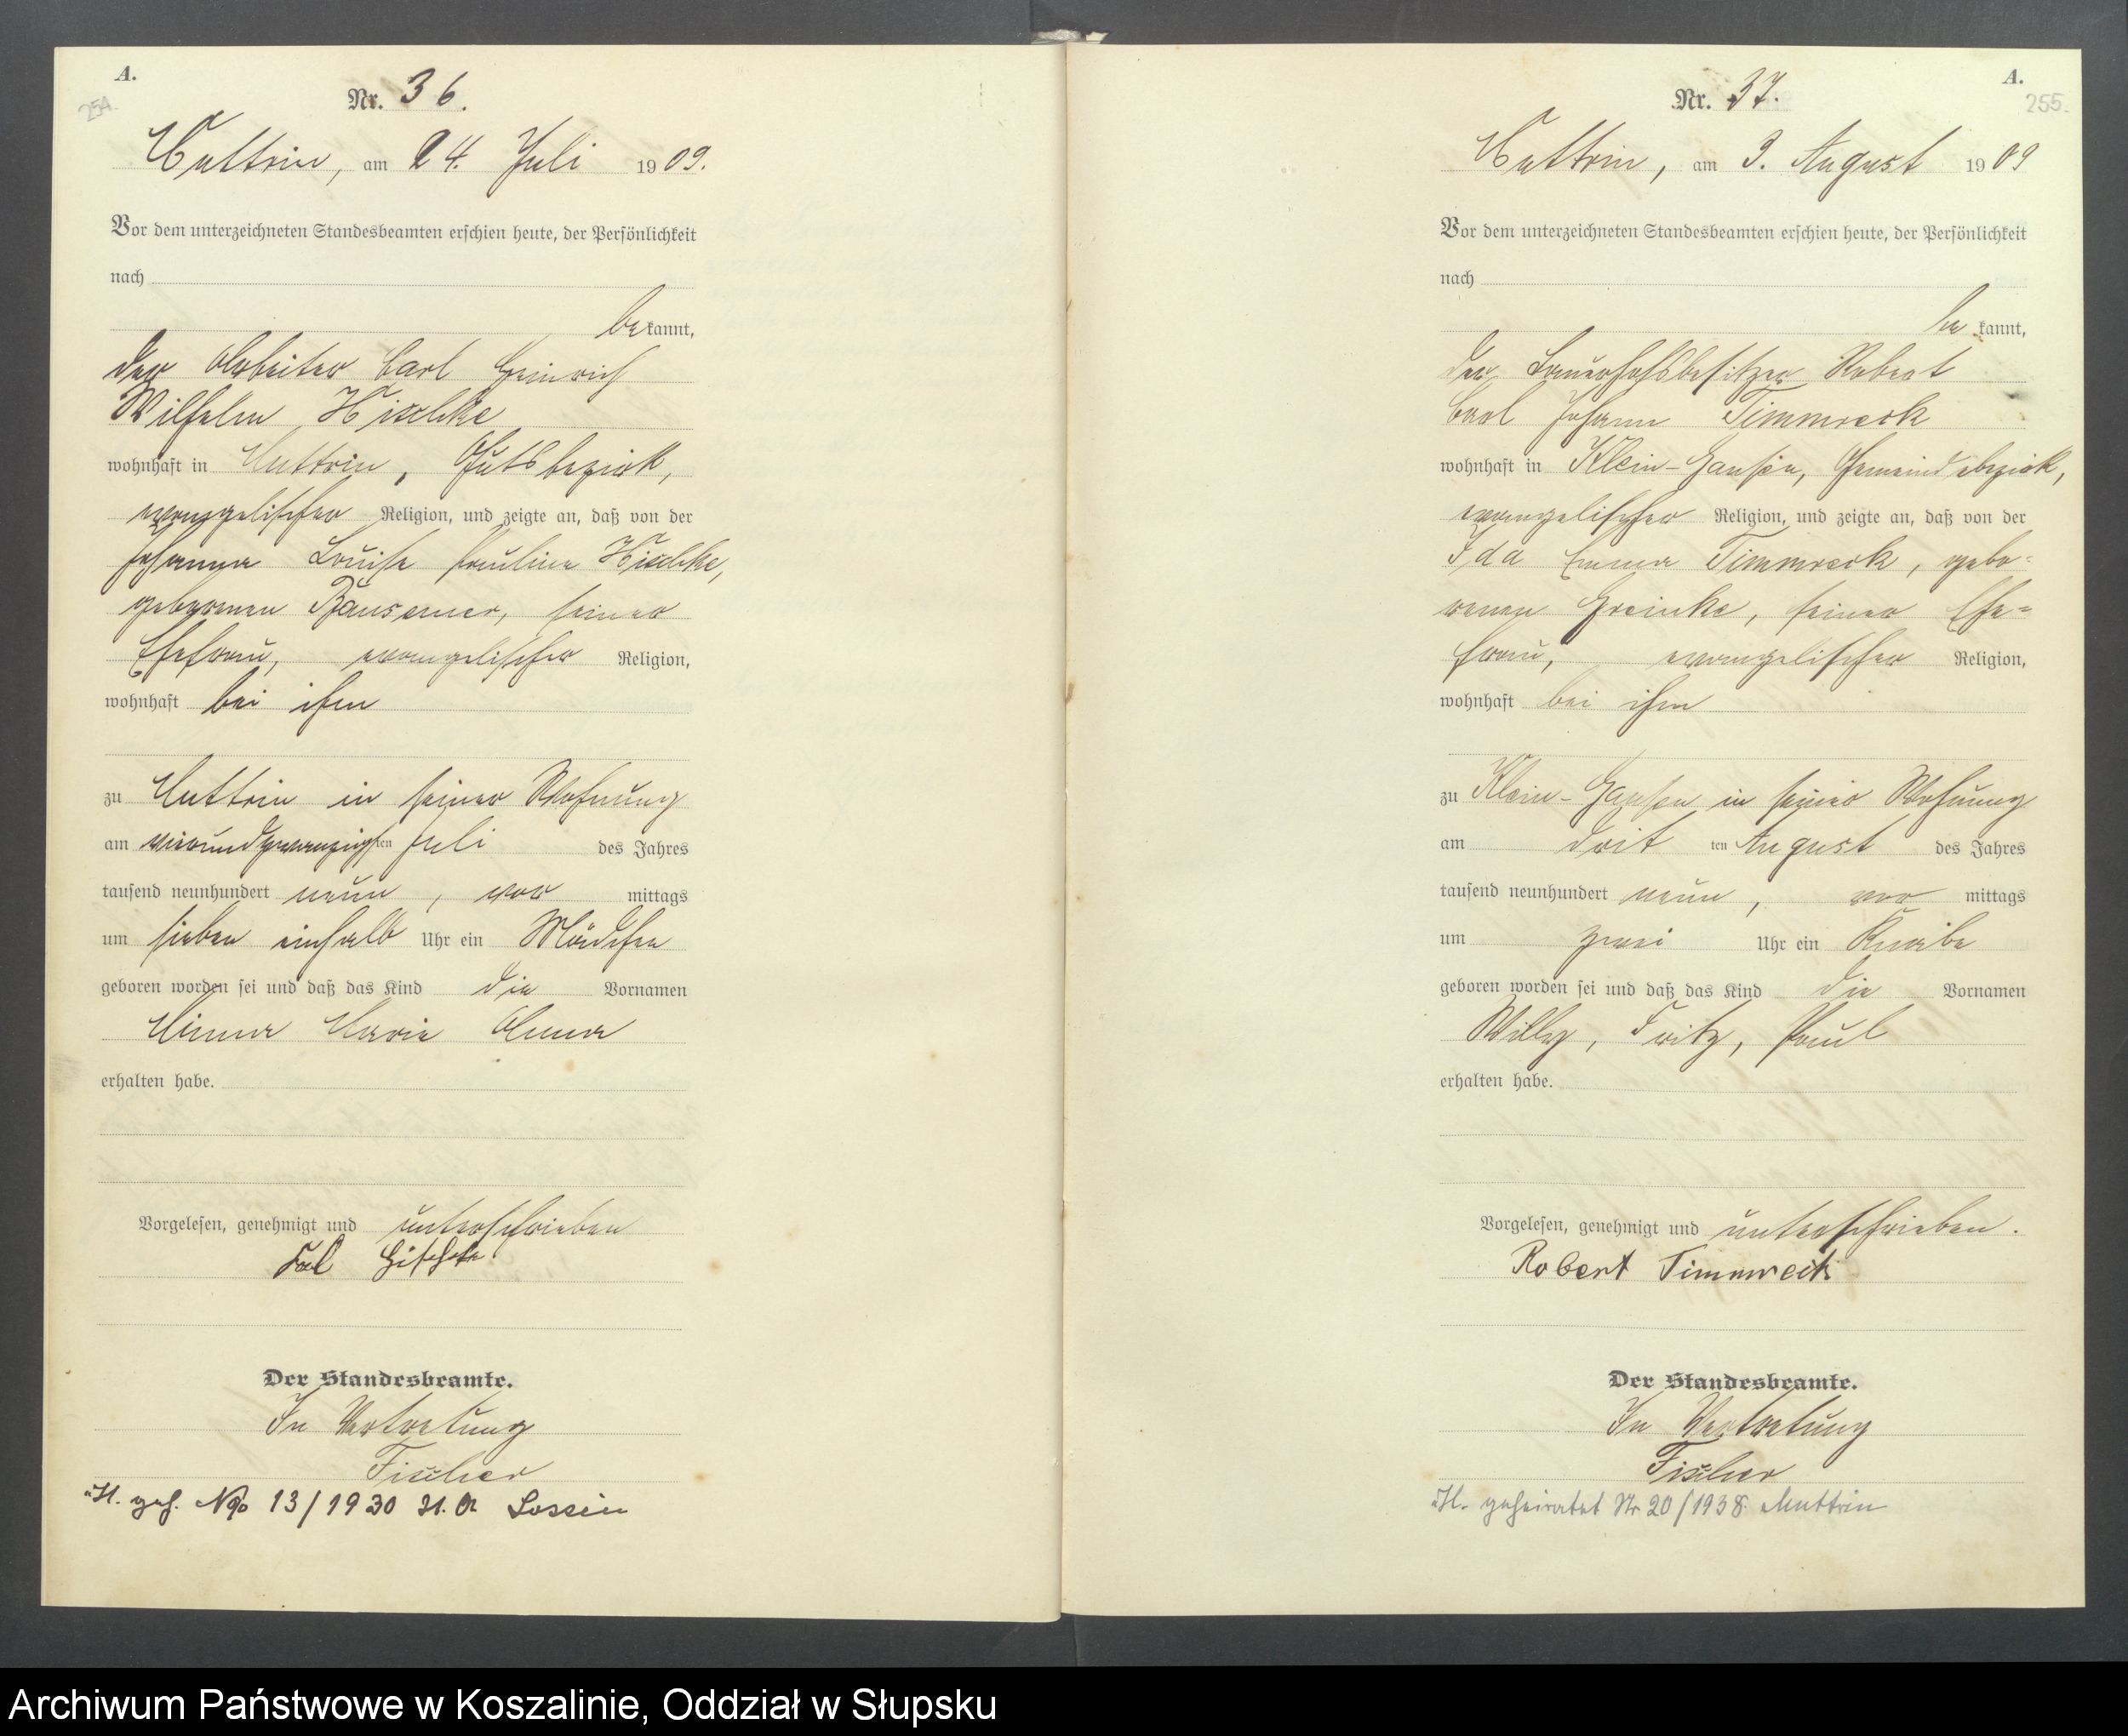 A.
254.
Nr. 36.
Muttrin, am 24. Juli 1909.
Vor dem unterzeichneten Standesbeamten erschien heute, der Persönlichkeit
nach
bekannt,
der Arbeiter Carl Heinrich
Wilhelm Hischke
wohnhaft in Muttrin, Gutsbezirk,
evangelischer Religion, und zeigte an, daß von der
Johanna Louise Pauline Hischke,
geborenen seiner
Ehefrau, evangelischer Religion,
wohnhaft bei ihm
zu Muttrin in seiner Wohnung
am vierundzwanzigsten Juli des Jahres
tausend neunhundert neun, vor mittags
um sieben einhalb Uhr ein Mädchen
geboren worden sei und daß das Kind die Vornamen
Minna Marie Anna
erhalten habe.
Vorgelesen, genehmigt und unterschrieben
Hischke
Der Standesbeamte.
In Vertretung
Fischer
geh. No 13/1930 St. A Lossin
A.
255.
Nr. 37.
Muttrin, am 3. August 1909
Vor dem unterzeichneten Standesbeamten erschien heute, der Persönlichkeit
nach
bekannt,
der Bauerhofsbesitzer Robert
Carl Johann Timmreck
wohnhaft in Klein-Gansen, Gemeindebezirk,
evangelischer Religion, und zeigte an, daß von der
Ida Emma Timmreck, gebo-
renen Greinke, seiner Ehe-
frau, evangelischer Religion,
wohnhaft bei ihm
zu Klein-Gansen in seiner Wohnung
am dritten August des Jahres
tausend neunhundert neun, vor mittags
um zwei Uhr ein Knabe
geboren worden sei und daß das Kind die Vornamen
Willy, Fritz, Paul
erhalten habe.
Vorgelesen, genehmigt und unterschrieben.
Robert Timmreck
Der Standesbeamte.
In Vertretung
Fischer
geheiratet Nr 20/1938 Muttrin
Archiwum Państwowe w Koszalinie, Oddział w Słupsku